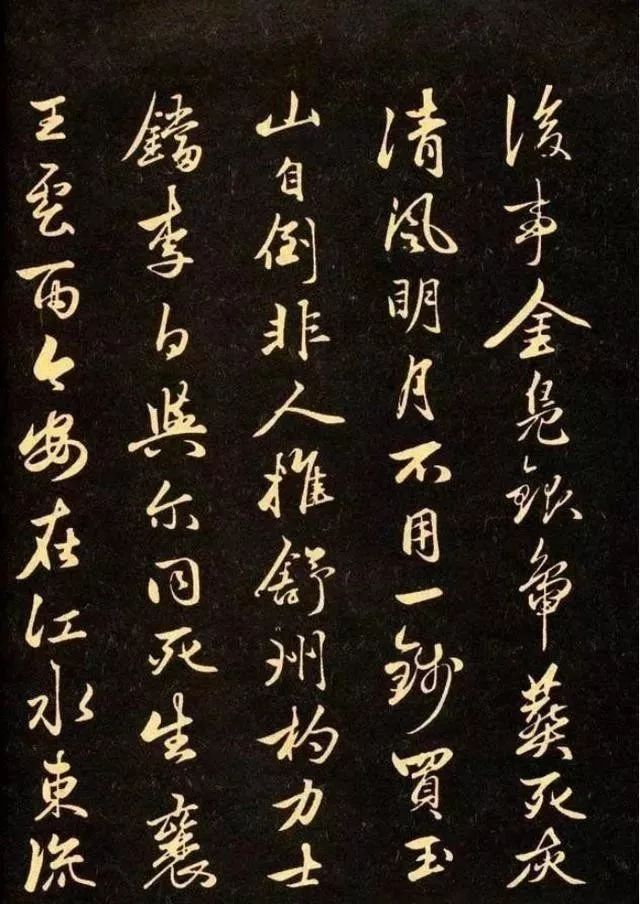 後事金鳧銀葬死灰
清風明月不用一錢買玉
山自倒非人推舒州杓力士
鐺李白與尔同死生襄
王雲雨今安在江水東流